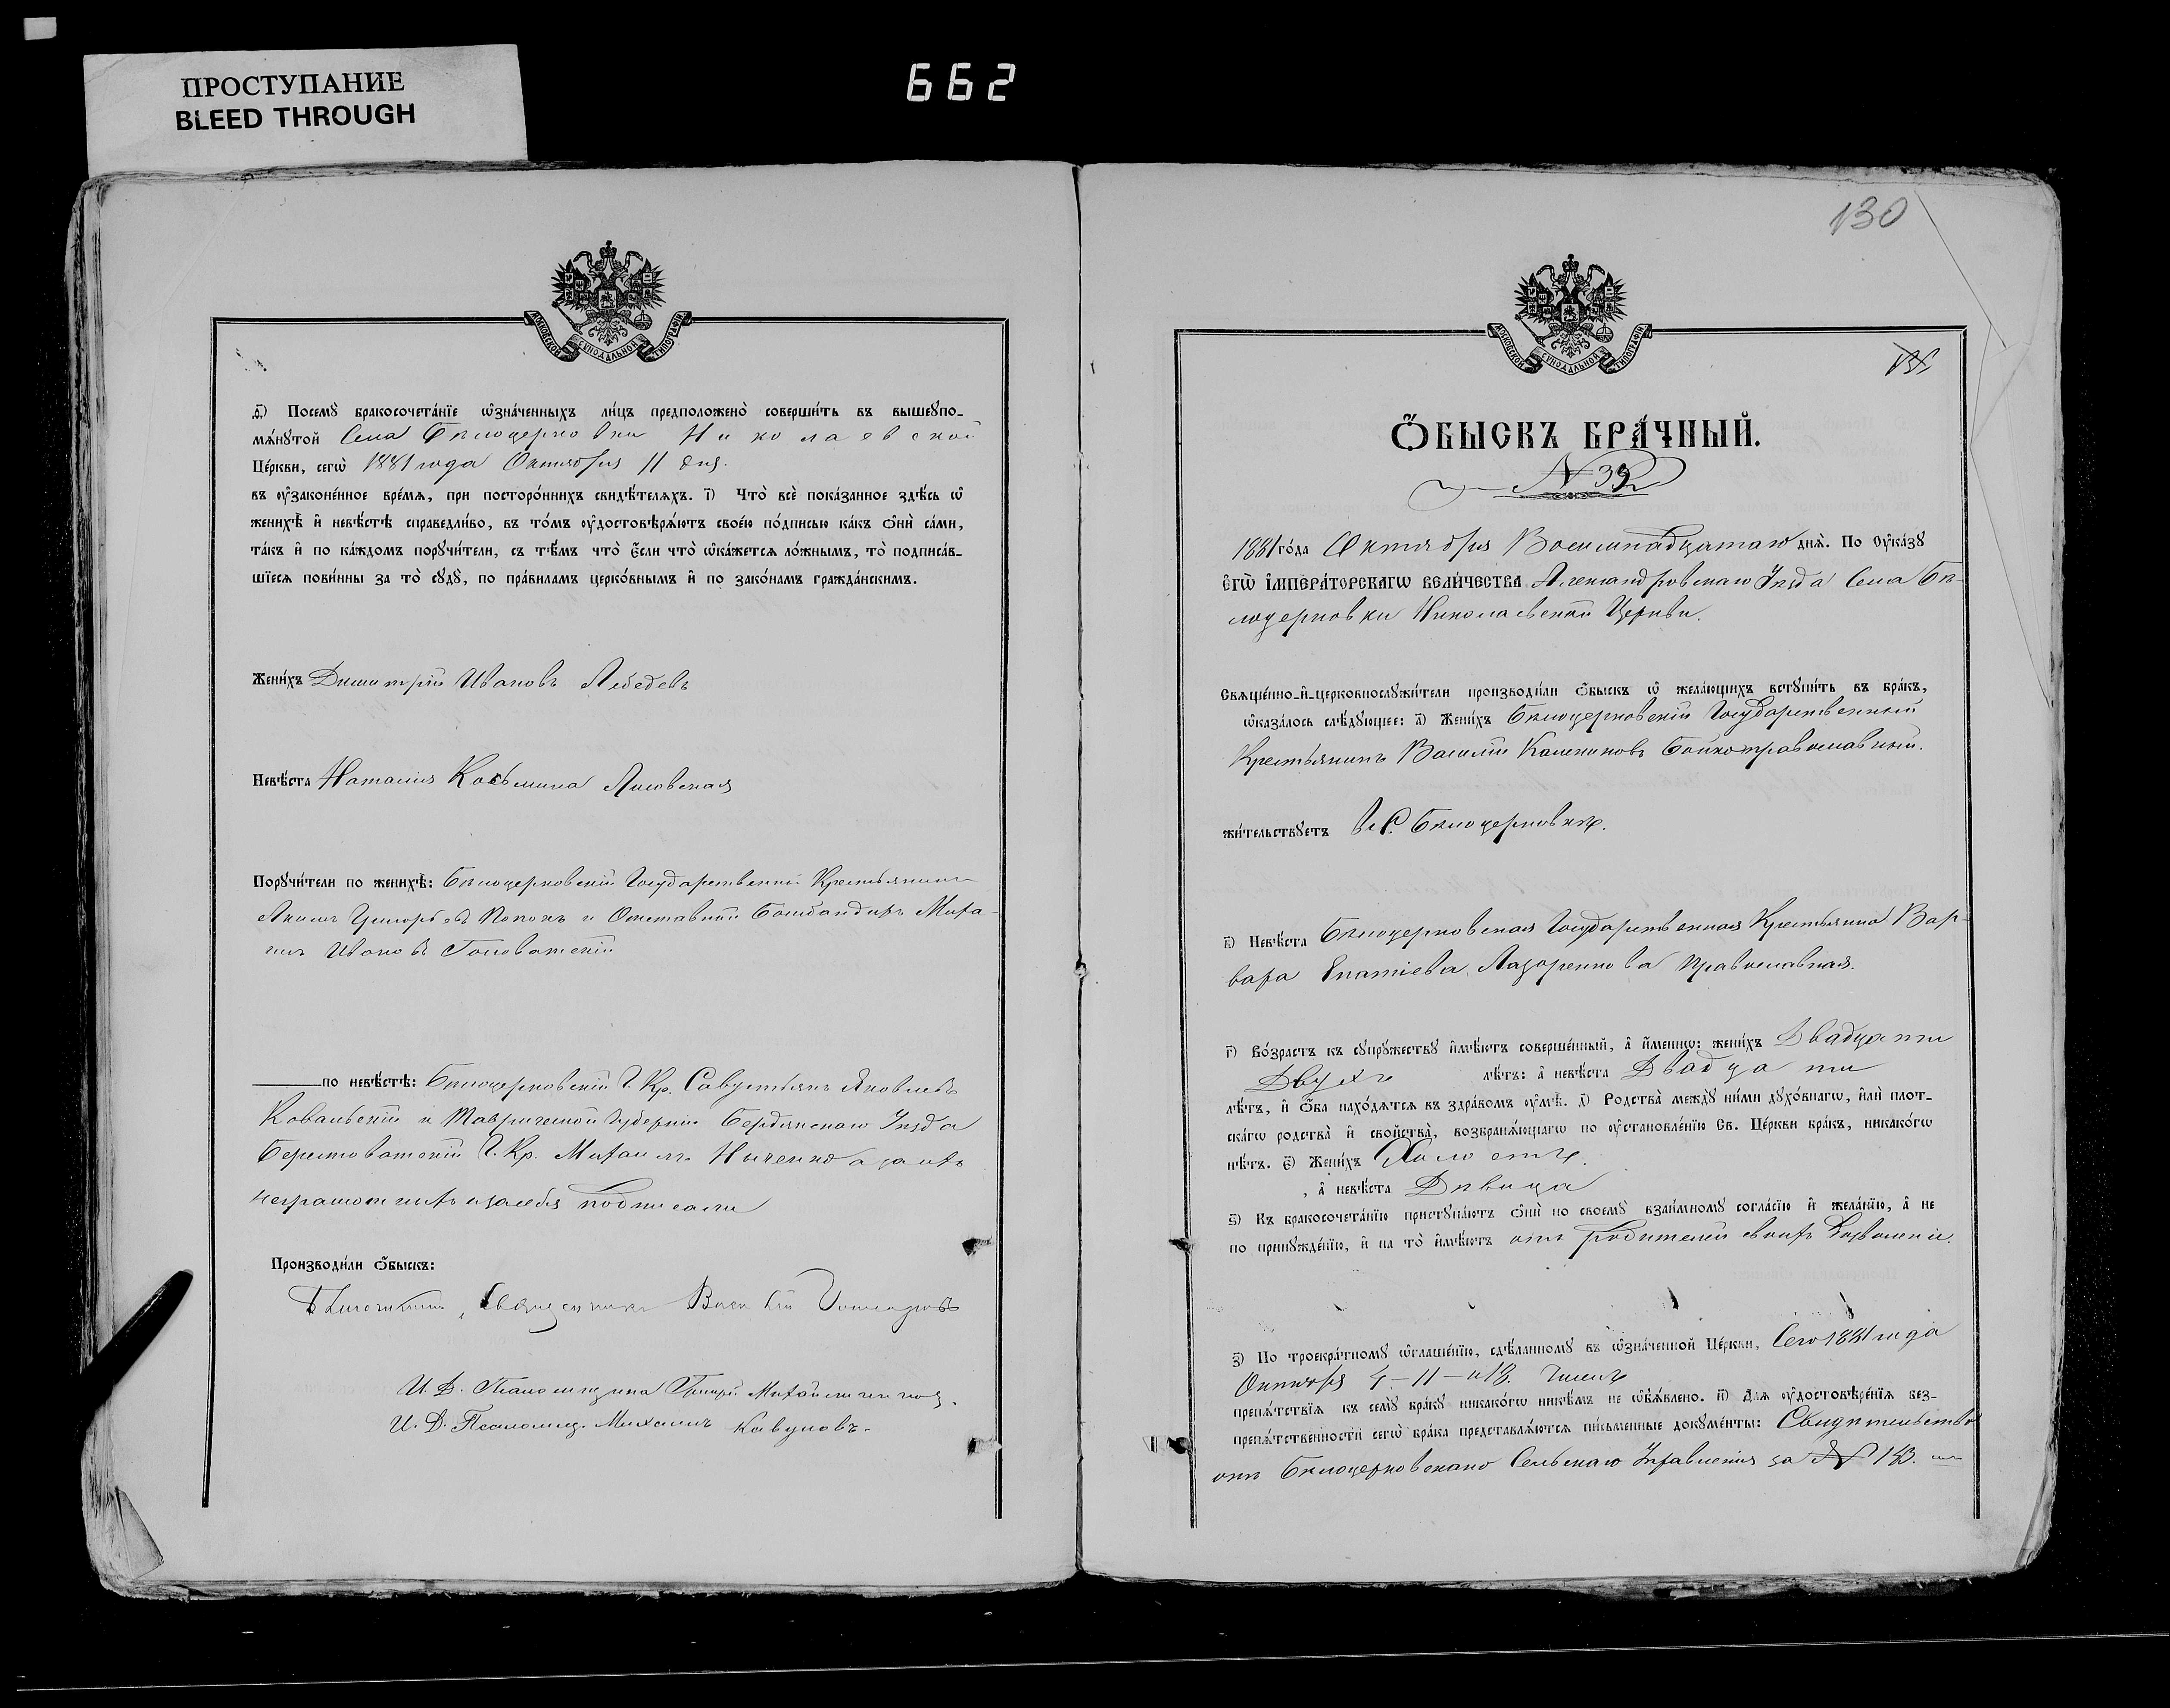 ПРОСТУПАНИЕ
BLEED THROUGH
662
МОСКОВСКОЙ СѴНОДАЛЬНОЙ ТИПОГРАФІИ
ѳ҃) Посемꙋ̀ бракосочета́нїе ѡ҆зна́ченныхъ ли́цъ предположено̀ соверши́ть въ вышеꙋпо-
мѧ́нꙋтой Села Бѣлоцерковки Николаевской
Це́ркви, сегѡ̀ 1881 года Октября 11 дня.
въ оу҆законе́нное вре́мѧ, при посторо́ннихъ свидѣ́телѧхъ. і҃) Что̀ всѐ пока́занное здѣ́сь ѡ҆
женихѣ̀ и҆ невѣ́стѣ справедли́во, въ то́мъ оу҆достовѣрѧ́ютъ свое́ю по́дписью ка́къ ѻ҆нѝ са́ми,
та́къ и҆ по ка́ждомъ порꙋчи́тели, съ тѣ́мъ что̀ є҆́сли что̀ ѡ҆ка́жетсѧ ло́жнымъ, то̀ подписа́в-
шїесѧ пови́нны за то̀ сꙋдꙋ̀, по пра́виламъ церко́внымъ и҆ по зако́намъ гражда́нскимъ.
Жени́хъ Димитрій Ивановъ Лебедевъ
Невѣ́ста Наталія Косьмина Лисовская
Порꙋчи́тели по женихѣ̀: Бѣлоцерковскій Государственный Крестьянинъ
Якимъ Григорьевъ и Отставной Бомбандиръ Миха-
илъ Ивановъ Головатскій
по невѣ́стѣ: Бѣлоцерковскій Г. Кр. Савустьянъ Яковлевъ
Ковальскій и Таврической Губерніи Бердянскаго Уѣзда
Берестоватскій Г. Кр. Михаилъ а за ихъ
неграмотныхъ и за себя подписали
Производи́ли ѻ҆́быскъ:
Священникъ Василій
И. Д. Псаломщика Григорій
И. Д. Псаломщ. Михаилъ Кавуновъ.
130
МОСКОВСКОЙ СѴНОДАЛЬНОЙ ТИПОГРАФІИ
Ѻ҆́БЫСКЪ БРА́ЧНЫЙ.
N 39
1881 го́да Октября Восемнадцатаго днѧ̀. По оу҆ка́зꙋ
Є҆ГѠ̀ И҆МПЕРА́ТОРСКАГѠ ВЕЛИ́ЧЕСТВА Александровскаго Уѣзда Села Бѣ-
лоцерковки Николаевской Церкви.
Свѧще́нно-и҆-церковнослꙋжи́тели производи́ли ѻ҆́быскъ ѡ҆ жела́ющихъ встꙋпи́ть въ бра́къ,
ѡ҆каза́лось слѣ́дꙋющее: а҃) Жени́хъ Бѣлоцерковскій Государственный
Крестьянинъ Василій Бойко православный.
жи́тельствꙋетъ Въ С. Бѣлоцерковкѣ.
в҃) Невѣ́ста Бѣлоцерковская Государственная Крестьянка Вар-
вара Ипатіева Лазоренкова православная.
г҃) Во́зрастъ къ сꙋпрꙋ́жествꙋ и҆мѣ́ютъ соверше́нный, а҆ и҆́менно: жени́хъ Двадцати
Двухъ лѣ́тъ: а҆ невѣ́ста Двадцати
лѣ́тъ, и҆ ѻ҆́ба нахо́дѧтсѧ въ здра́вомъ оу҆мѣ̀. д҃) Родства̀ междꙋ̀ ни́ми дꙋхо́внагѡ, и҆лѝ плот-
ска́гѡ родства̀ и҆ свойства̀, возбранѧ́ющагѡ по оу҆становле́нїю Св. Це́ркви бра́къ, никако́гѡ
нѣ́тъ. є҃) Жени́хъ Холостъ.
, а҆ невѣ́ста Дѣвица
ѕ҃) Къ бракосочета́нїю пристꙋпа́ютъ ѻ҆нѝ по своемꙋ̀ взаи́мномꙋ согла́сїю и҆ жела́нїю, а҆ не
по принꙋжде́нїю, и҆ на то̀ и҆мѣ́ютъ отъ родителей своихъ дозволеніе.
з҃) По троекра́тномꙋ ѡ҆глаше́нїю, сдѣ́ланномꙋ въ ѡ҆зна́ченной Це́ркви, Сего 1881 года
Октября 4 – 11 – и 18. числъ
препѧ́тствїѧ къ семꙋ̀ бра́кꙋ никако́гѡ никѣ́мъ не ѡ҆б̾ѧ́влено. и҃) Длѧ оу҆достовѣре́нїѧ без-
препѧ́тственности сегѡ̀ бра́ка представлѧ́ютсѧ пи́сьменные докꙋме́нты: Свидѣтельство
отъ Бѣлоцерковскаго Сельскаго Управленія за N